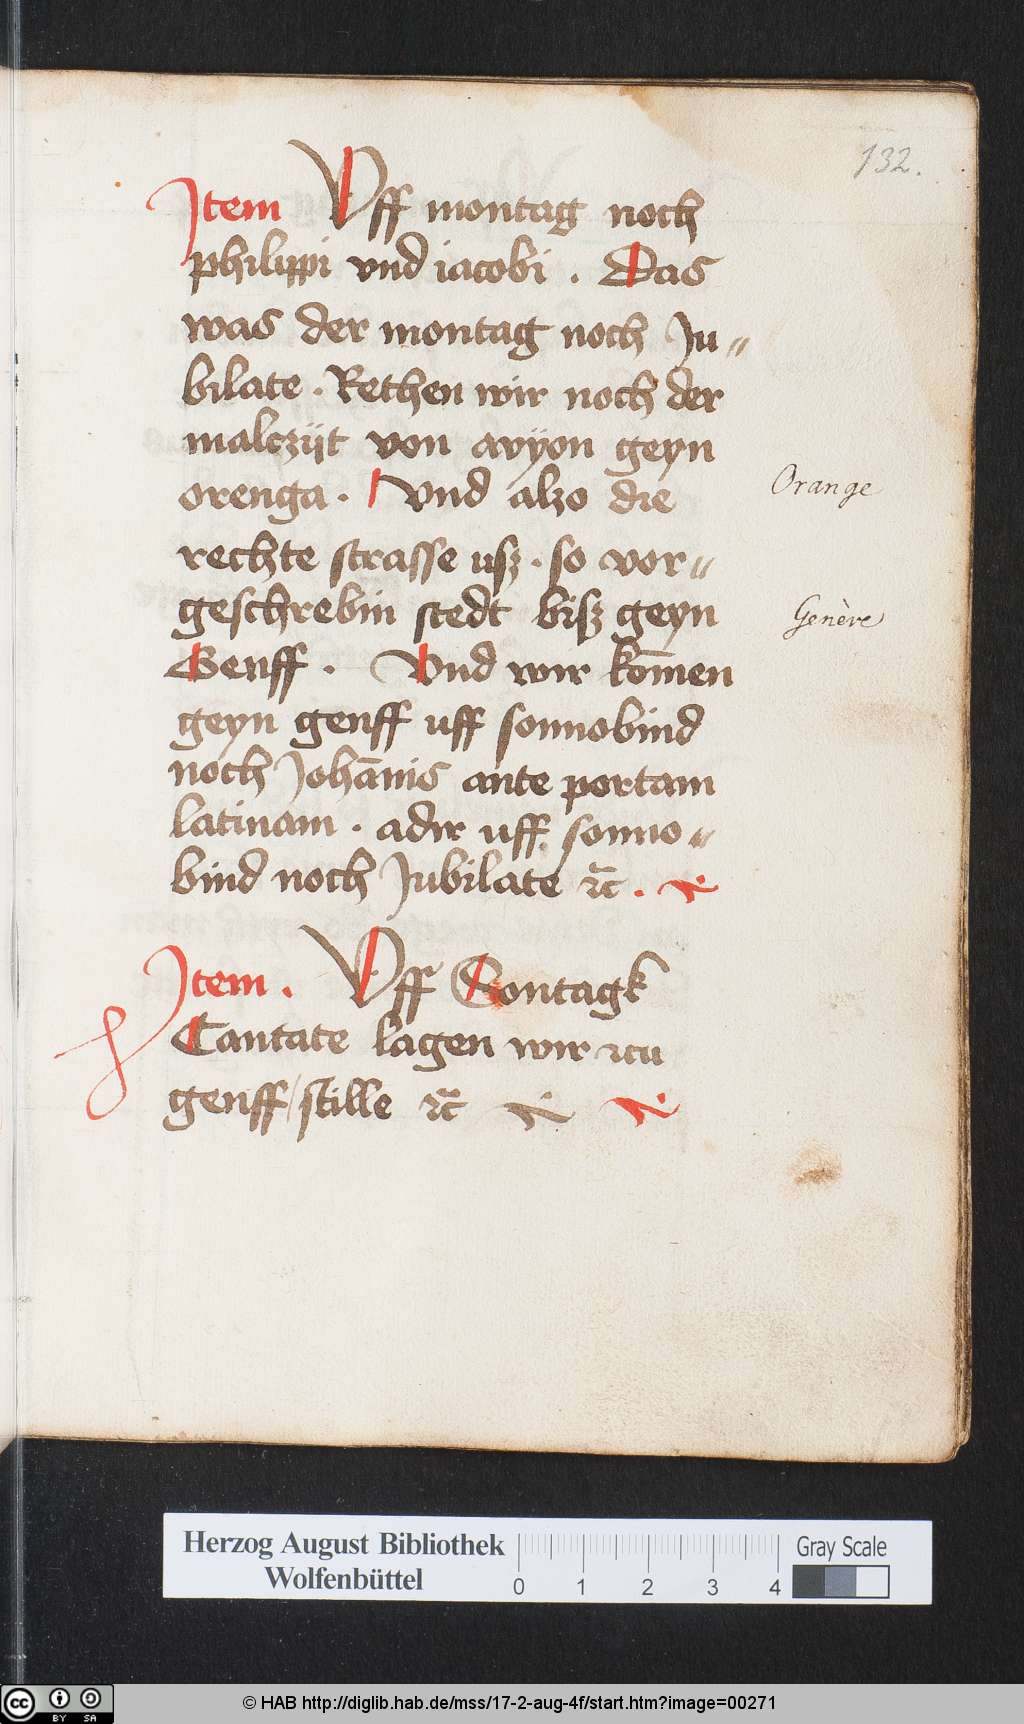 132.
Item Vff montag noch
philippi vnd iacobi . Das
was der montag noch Ju„
bilate . Rethen wir noch der
malczijt von avÿon geyn
orenga . Vnd alzo die
Orange
rechte strasse usz . so vor„
geschrebin stedt bisz geyn
Genève
Genff . Vnd wir kōmen
geyn genff uff sonnobind
noch Johānis ante portam
latinam . adir uff sonno„
bind noch Jubilate ꝛc̄ .
Item . Vff Sontagk
Cantate lagen wir zcu
genff / stille ꝛc̄
Herzog August Bibliothek
Wolfenbüttel
0 1 2 3 4
Gray Scale
cc BY SA
© HAB http://diglib.hab.de/mss/17-2-aug-4f/start.htm?image=00271